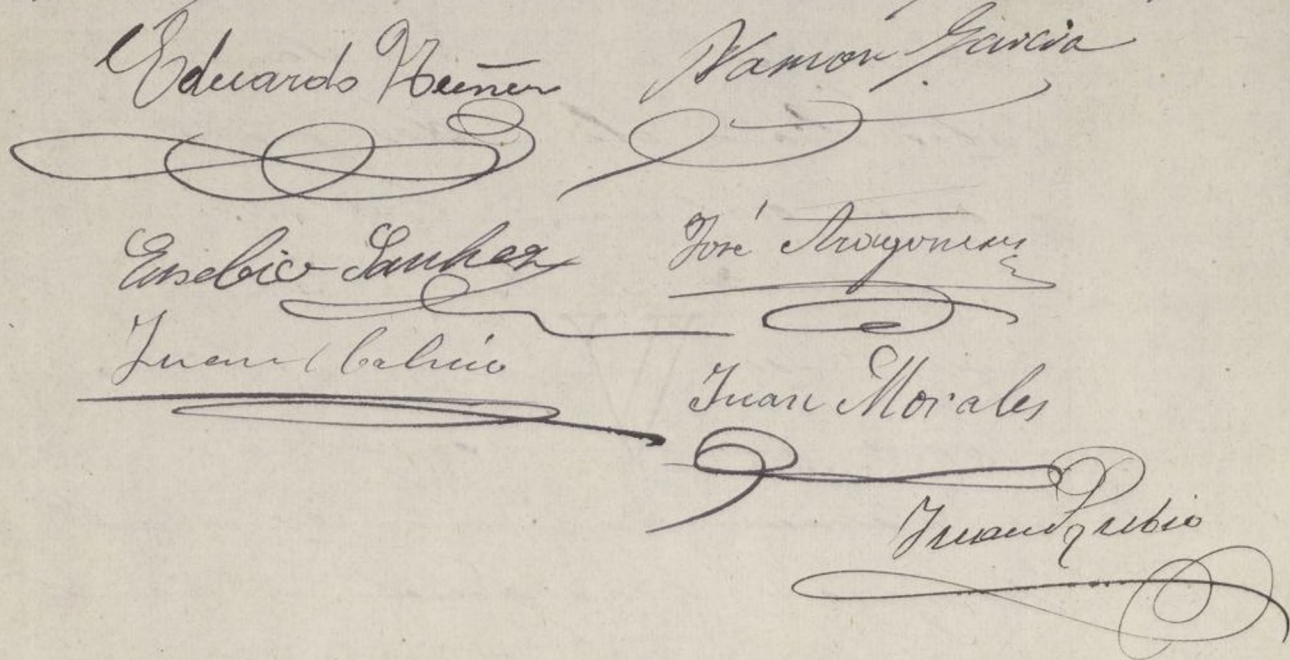 Eduardo Nuñez Ramon Garcia
Eusebio Sanhez José Aragones
Juan
Juan Morales
Juan Rubio